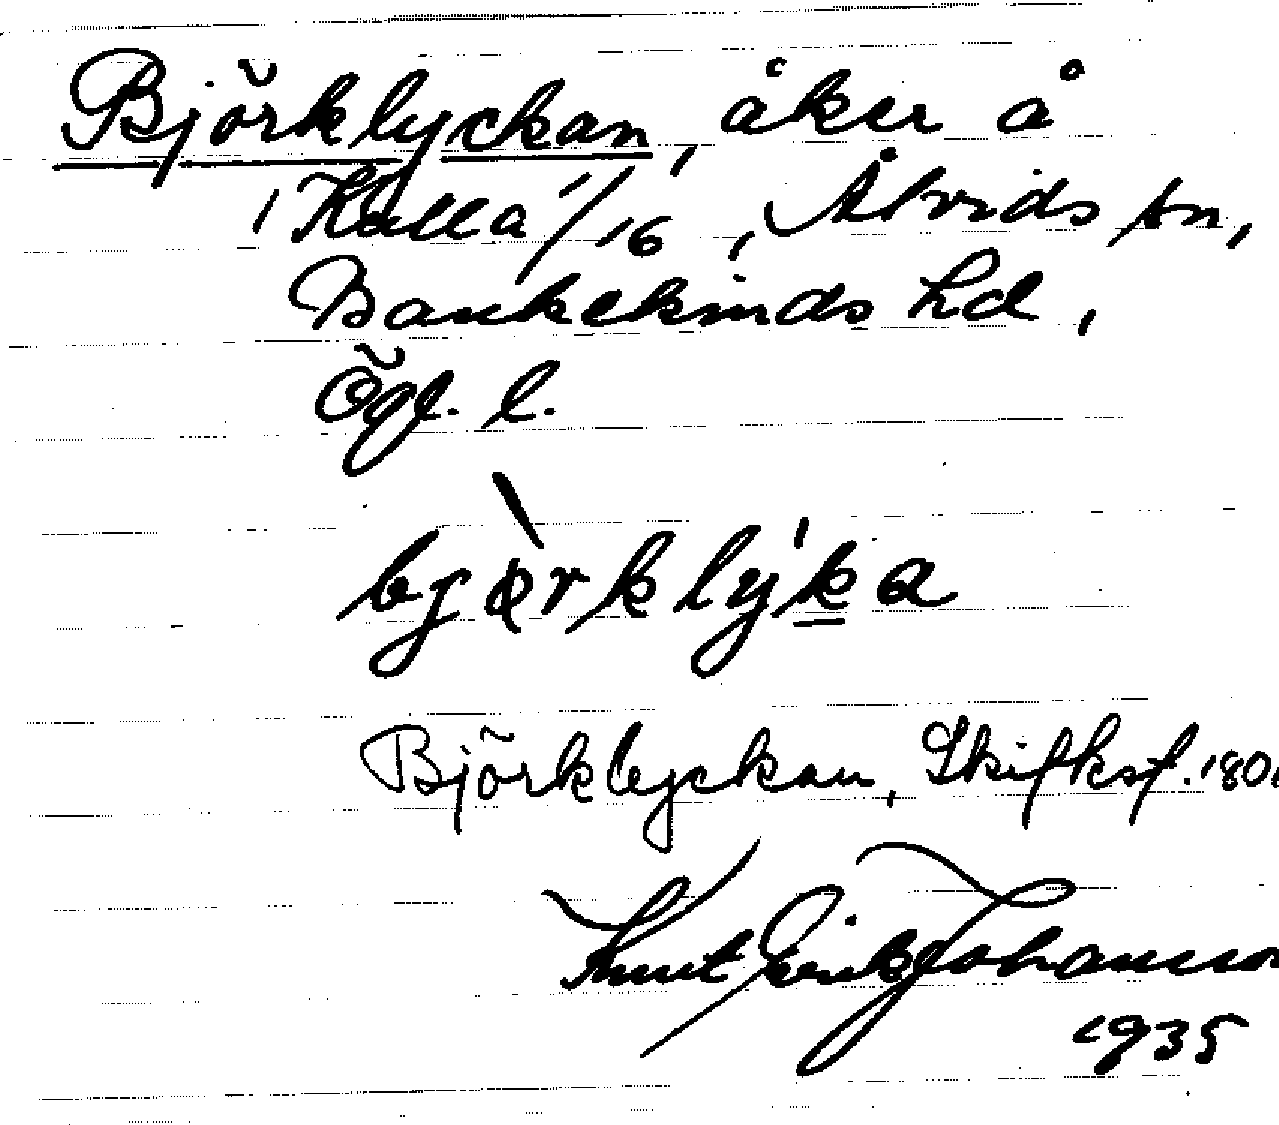 Björklyckan, åker å
1 Kulla 1/16, Åtvids sn,
Bankekinds hd,
Ögl. l.
bjö̀rklýka
Björklyckan, Skifksf. 180
Knut Erik Johansson
1935